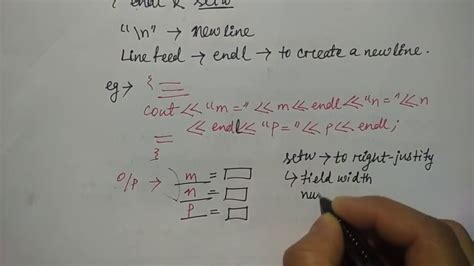 endl & setw
"\n" → newline
Line feed → endl → to create a newline.
eg → {
cout << "m=" << m << endl << "n=" << n
<< endl << "p=" << p << endl;
}
O/P → m =
n =
p =
setw → to right-justify
↳ field width
nu